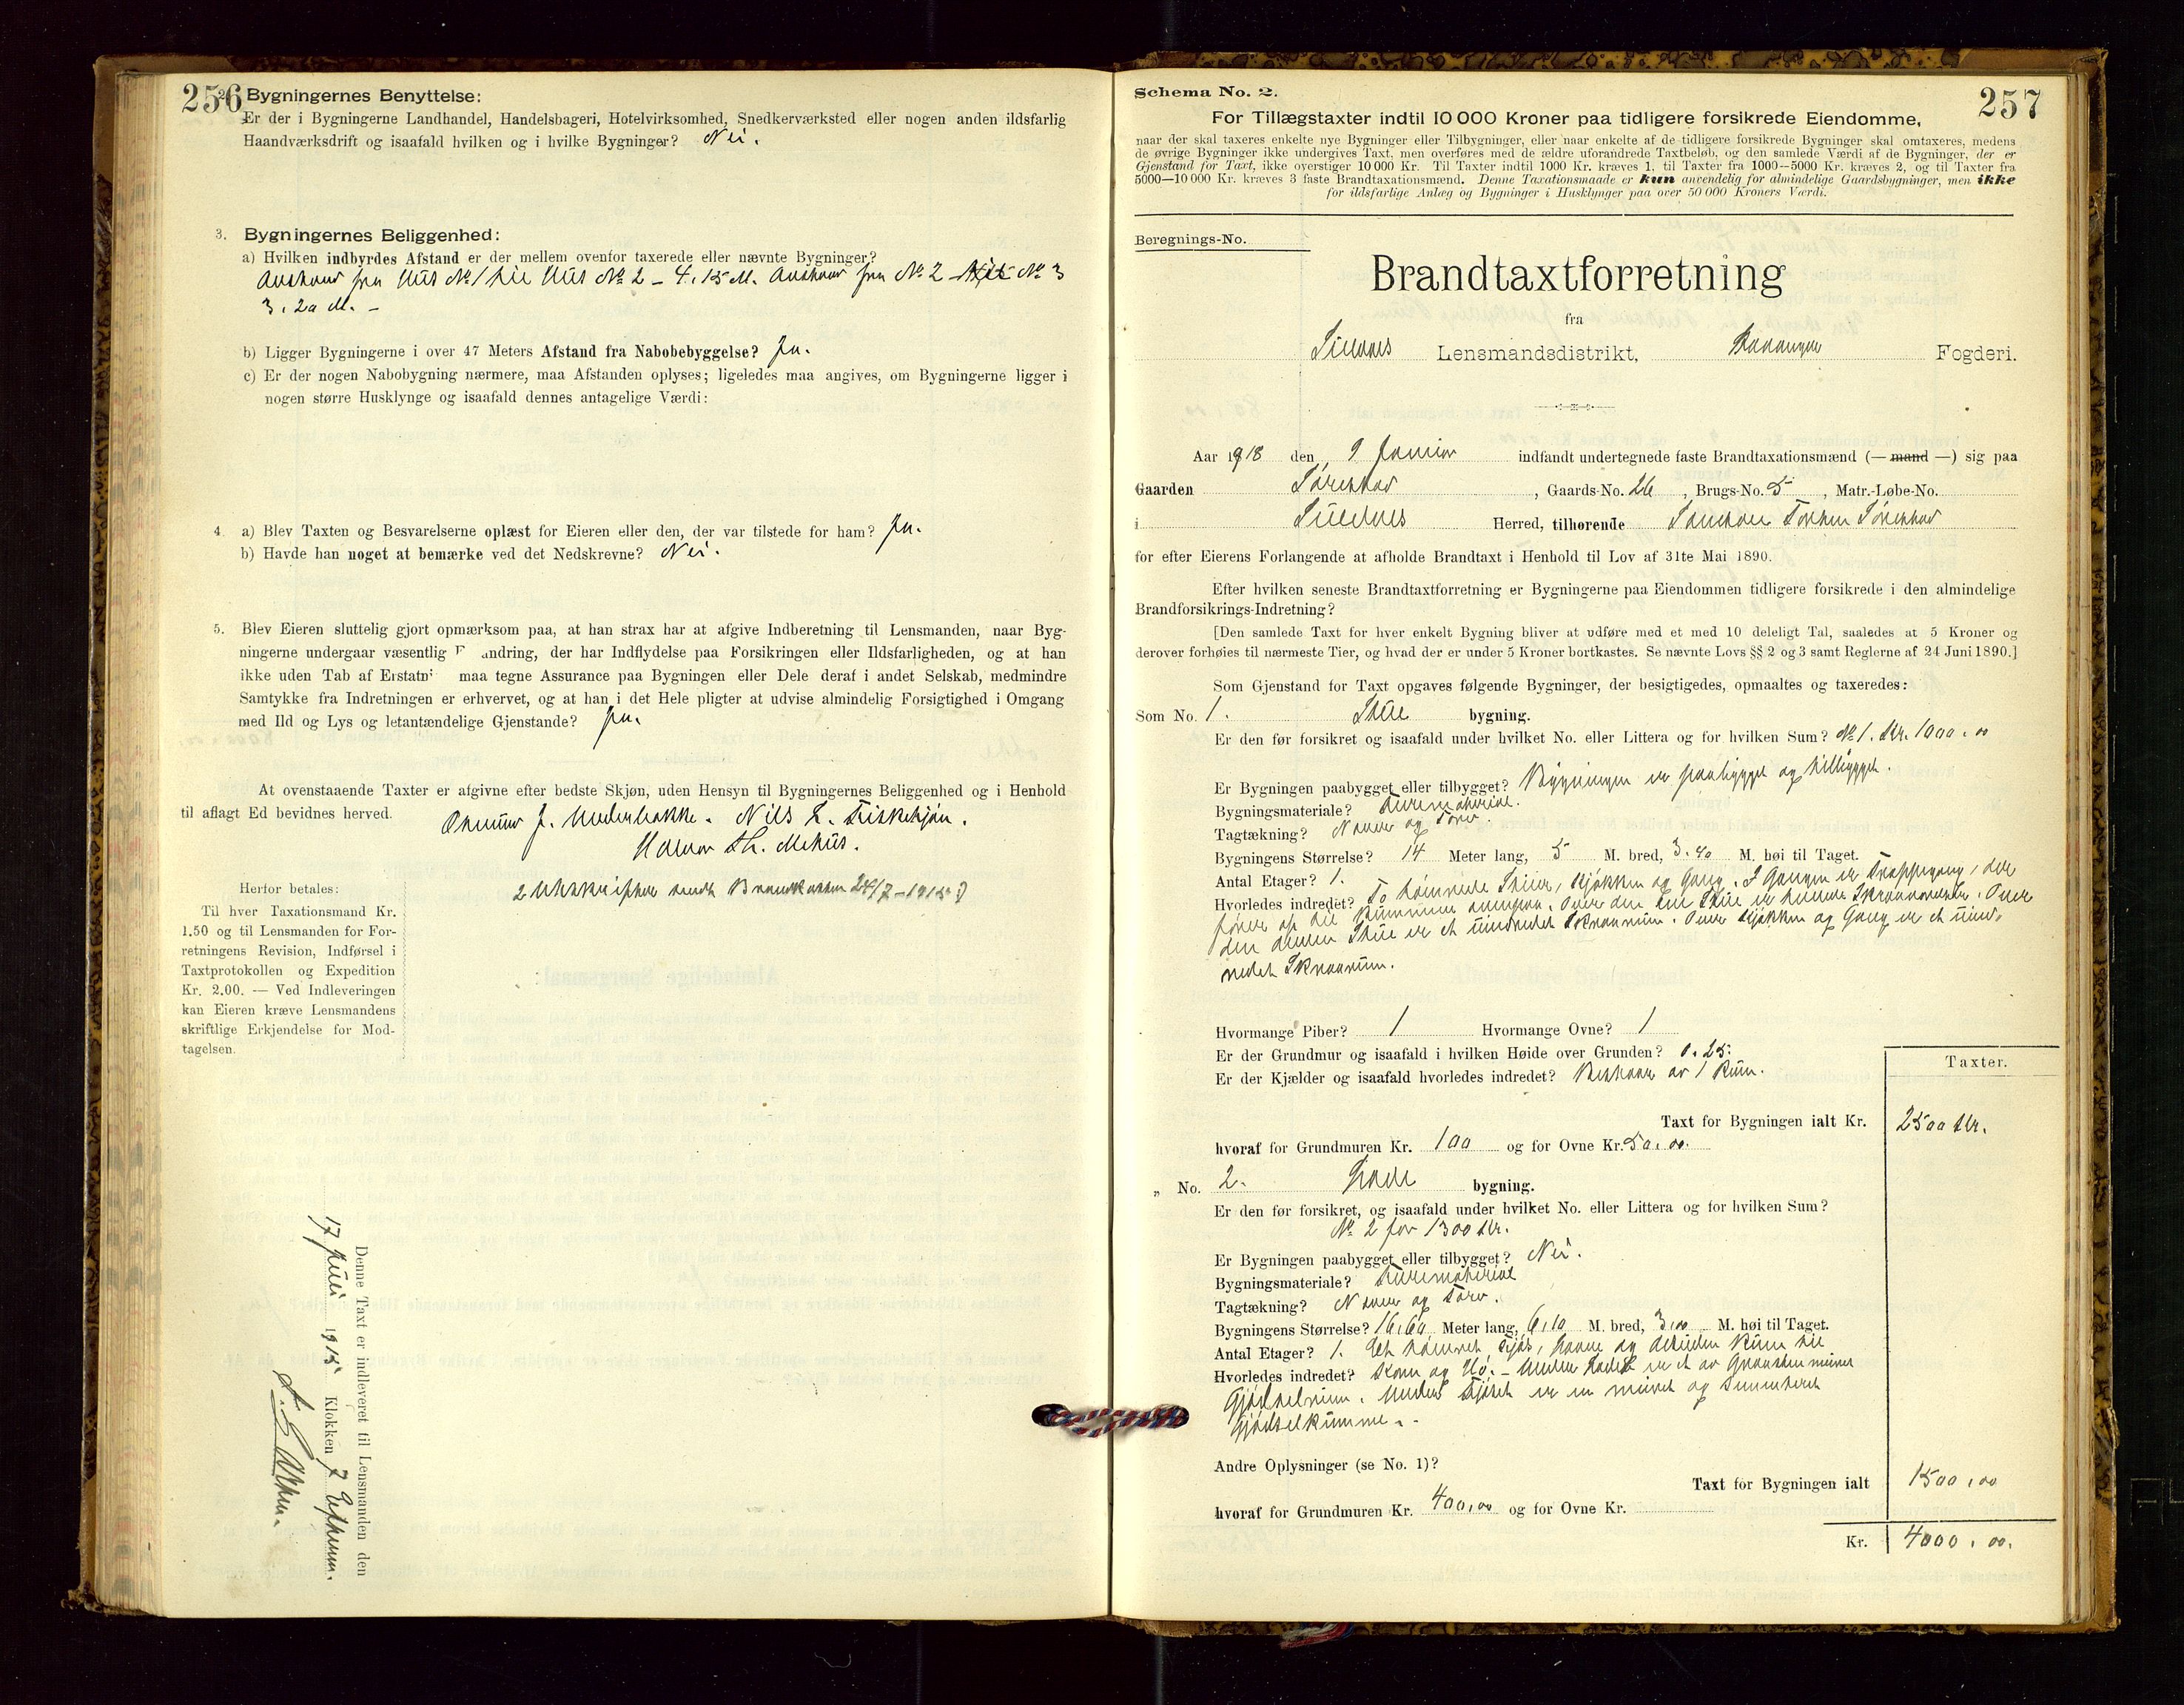 256
2. Bygningernes Benyttelse:
Er der i Bygningerne Landhandel, Handelsbageri, Hotelvirksomhed, Snedkerværksted eller nogen anden ildsfarlig
Haandværksdrift og isaafald hvilken og i hvilke Bygninger? Nei.
3. Bygningernes Beliggenhed:
a) Hvilken indbyrdes Afstand er der mellem ovenfor taxerede eller nævnte Bygninger?
Avstand fra Hus № 1 til Hus № 2 - 4,15 M. Avstand fra № 2 til № 3
3,20 M. -
b) Ligger Bygningerne i over 47 Meters Afstand fra Nabobebyggelse? Ja.
c) Er der nogen Nabobygning nærmere, maa Afstanden oplyses; ligeledes maa angives, om Bygningerne ligger i
nogen større Husklynge og isaafald dennes antagelige Værdi:
4. a) Blev Taxten og Besvarelserne oplæst for Eieren eller den, der var tilstede for ham? Ja.
b) Havde han noget at bemærke ved det Nedskrevne? Nei.
5. Blev Eieren sluttelig gjort opmærksom paa, at han strax har at afgive Indberetning til Lensmanden, naar Byg-
ningerne undergaar væsentlig F andring, der har Indflydelse paa Forsikringen eller Ildsfarligheden, og at han
ikke uden Tab af Erstatni maa tegne Assurance paa Bygningen eller Dele deraf i andet Selskab, medmindre
Samtykke fra Indretningen er erhvervet, og at han i det Hele pligter at udvise almindelig Forsigtighed i Omgang
med Ild og Lys og letantændelige Gjenstande? Ja.
At ovenstaaende Taxter er afgivne efter bedste Skjøn, uden Hensyn til Bygningernes Beliggenhed og i Henhold
til aflagt Ed bevidnes herved.
J. Nils L.
Halvor Th.
Herfor betales:
Til hver Taxationsmand Kr.
1.50 og til Lensmanden for For-
retningens Revision, Indførsel i
Taxtprotokollen og Expedition
Kr. 2.00. — Ved Indleveringen
kan Eieren kræve Lensmandens
skriftlige Erkjendelse for Mod-
tagelsen.
2 Utskrifter sendt Brandkassen 24/7-1915
Denne Taxt er indleveret til Lensmanden den
17 Juli 1915 Klokken 7 Efterm.
257
Schema No. 2.
For Tillægstaxter indtil 10 000 Kroner paa tidligere forsikrede Eiendomme,
naar der skal taxeres enkelte nye Bygninger eller Tilbygninger, eller naar enkelte af de tidligere forsikrede Bygninger skal omtaxeres, medens
de øvrige Bygninger ikke undergives Taxt, men overføres med de ældre uforandrede Taxtbeløb, og den samlede Værdi af de Bygninger, der er
Gjenstand for Taxt, ikke overstiger 10 000 Kr. Til Taxter indtil 1000 Kr. kræves 1, til Taxter fra 1000—5000 Kr. kræves 2, og til Taxter fra
5000—10 000 Kr. kræves 3 faste Brandtaxationsmænd. Denne Taxationsmaade er kun anvendelig for almindelige Gaardsbygninger, men ikke
for ildsfarlige Anlæg og Bygninger i Husklynger paa over 50 000 Kroners Værdi.
Beregnings-No.
Brandtaxtforretning
fra
Suldal Lensmandsdistrikt, Fogderi.
Aar 1918 den 9 Januar indfandt undertegnede faste Brandtaxationsmænd (— mand —) sig paa
Gaarden , Gaards-No. 26, Brugs-No. 5, Matr.-Løbe-No.
i Herred, tilhørende
for efter Eierens Forlangende at afholde Brandtaxt i Henhold til Lov af 31te Mai 1890.
Efter hvilken seneste Brandtaxtforretning er Bygningerne paa Eiendommen tidligere forsikrede i den almindelige
Brandforsikrings-Indretning?
[Den samlede Taxt for hver enkelt Bygning bliver at udføre med et med 10 deleligt Tal, saaledes at 5 Kroner og
derover forhøies til nærmeste Tier, og hvad der er under 5 Kroner bortkastes. Se nævnte Lovs §§ 2 og 3 samt Reglerne af 24 Juni 1890.]
Som Gjenstand for Taxt opgaves følgende Bygninger, der besigtigedes, opmaaltes og taxeredes:
Som No. 1. Stue bygning.
Er den før forsikret og isaafald under hvilket No. eller Littera og for hvilken Sum? № 1. Kr. 1000,00
Er Bygningen paabygget eller tilbygget? Bygningen er paabygget og tilbygget.
Bygningsmateriale? Furemateriale.
Tagtækning? Næver og Torv.
Bygningens Størrelse? 14 Meter lang, 5 M. bred, 3.40 M. høi til Taget.
Antal Etager? 1.
Hvorledes indredet? To tømrede Stuer, Kjøkken og Gang. I Gangen er Trappegang, der
fører op til Rummene ovenpaa. Over den ene Stue er Over
den anden Stue er et uindredet Skraarum. Over Kjøkken og Gang er et uind-
redet Skraarum.
Hvormange Piber? 1 Hvormange Ovne? 1
Er der Grundmur og isaafald i hvilken Høide over Grunden? 0.25.
Er der Kjælder og isaafald hvorledes indredet? Bestaar av 1 Rum.
Taxter.
Taxt for Bygningen ialt Kr. 2500 Kr.
hvoraf for Grundmuren Kr. 100 og for Ovne Kr. 50,00.
„ No. 2. Lade bygning.
Er den før forsikret, og isaafald under hvilket No. eller Littera og for hvilken Sum?
№ 2 for 1300 Kr.
Er Bygningen paabygget eller tilbygget? Nei.
Bygningsmateriale? Furemateriale
Tagtækning? Næver og Torv.
Bygningens Størrelse? 16,60 Meter lang, 6,10 M. bred, 3,00 M. høi til Taget.
Antal Etager? 1. Et tømret Fjøs, Laave og Rum til
Hvorledes indredet? Korn og Hø. - Under Laden er et av Graasten muret
Gjødselrum. Under Fjøset er en muret og sementeret
Gjødselkumme. -
Andre Oplysninger (se No. 1)?
Taxt for Bygningen ialt 1500,00
hvoraf for Grundmuren Kr. 400,00 og for Ovne Kr.
Kr. 4000,00.